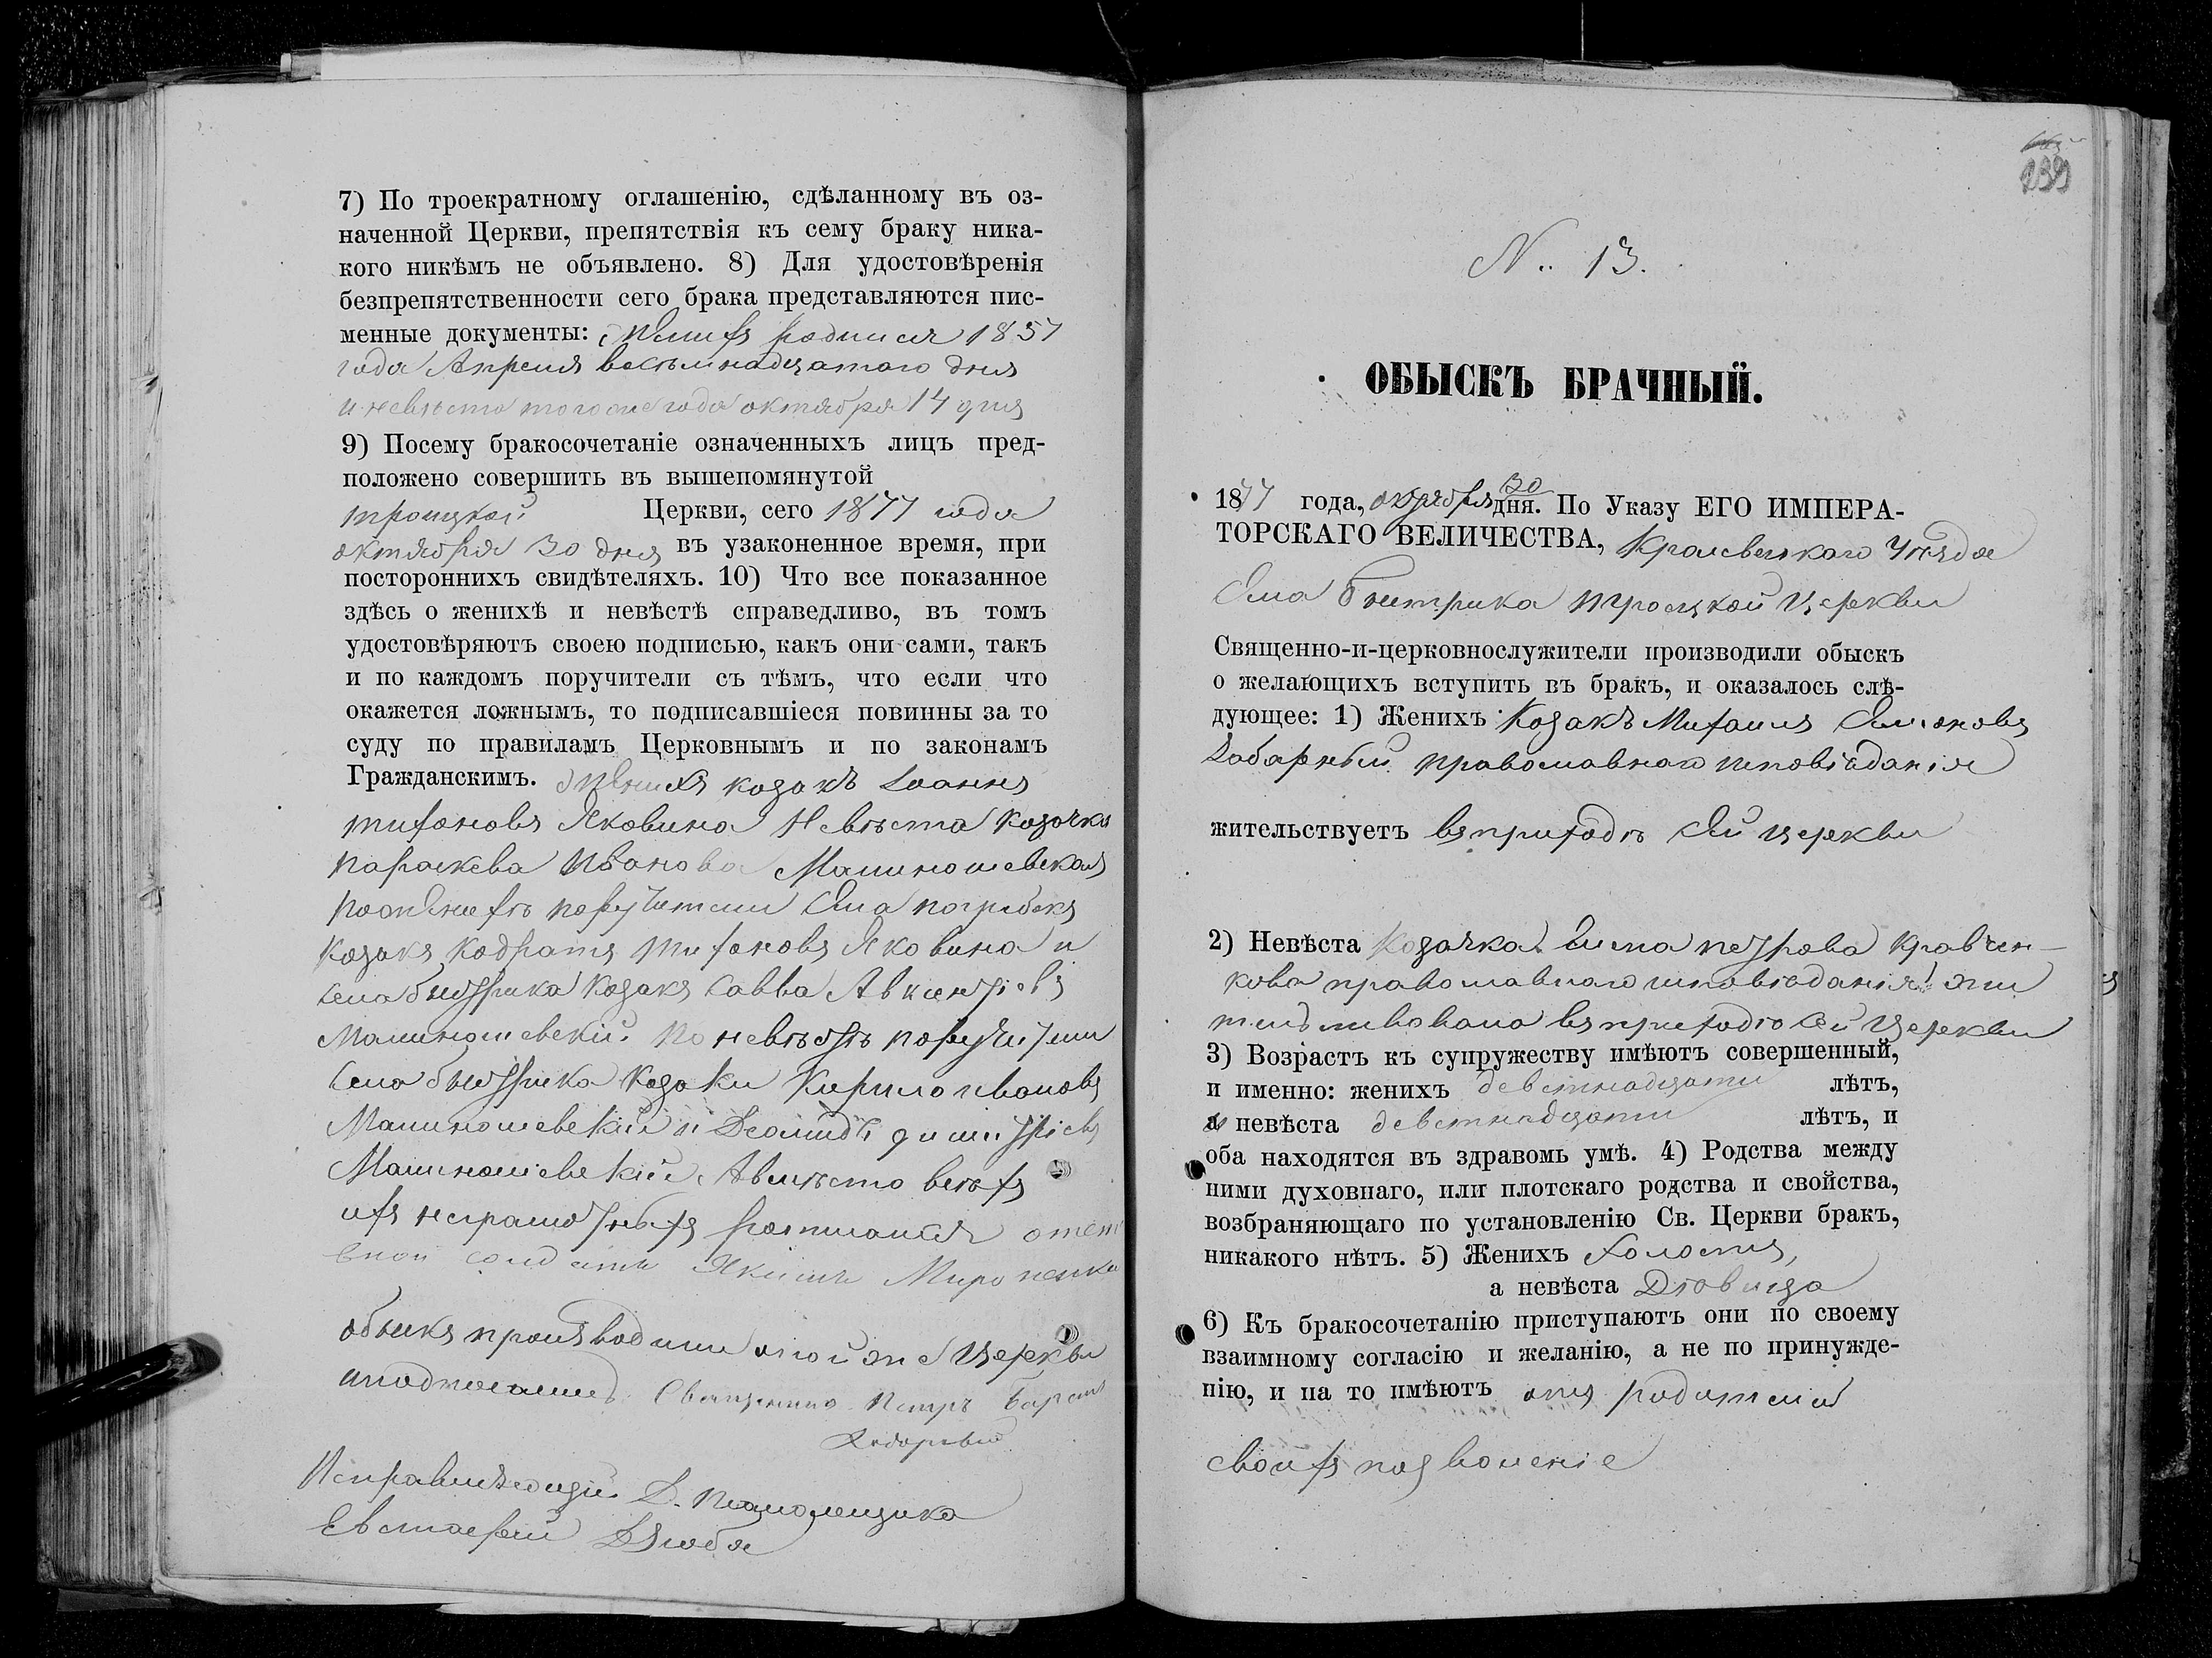 7) По троекратному оглашенію, сдѣланному въ оз-
наченной Церкви, препятствія къ сему браку ника-
кого никѣмъ не объявлено. 8) Для удостовѣренія
безпрепятственности сего брака представляются пис-
менные документы: Женихъ родился 1857
года Апреля восьмнадцатого дня
и невѣста того же года октября 14 дня
9) Посему бракосочетаніе означенныхъ лицъ пред-
положено совершить въ вышепомянутой
троицкой Церкви, сего 1877 года
октября 30 дня въ узаконенное время, при
постороннихъ свидѣтеляхъ. 10) Что все показанное
здѣсь о женихѣ и невѣстѣ справедливо, въ томъ
удостовѣряютъ своею подписью, какъ они сами, такъ
и по каждомъ поручители съ тѣмъ, что если что
окажется ложнымъ, то подписавшіеся повинны за то
суду по правиламъ Церковнымъ и по законамъ
Гражданскимъ. Женихъ козакъ Іоаннъ
тихоновъ Яковина Невѣста козачка
параскева Иванова Малиношевская
по женихѣ поручители Села погребокъ
козакъ Кодратъ тихоновъ Яковина и
села быстрика козакъ Савва Авксентіевъ
Малиношевскій. По невѣстѣ поручители
села быстрика козаки Кирило ивановъ
Малиношевскій и Леонидъ димитріевъ
Малиношевскій. А вмѣсто всѣхъ
ихъ неграмотныхъ росписался отст
вной солдатъ Якимъ Мироненко
обыскъ производили той же Церкви
Священникъ Петръ
Исправляющій Д. Псаломщика
Евстафій Дзюба
239
N.. 13.
ОБЫСКЪ БРАЧНЫЙ.
1877 года, октября 30 дня. По Указу ЕГО ИМПЕРА-
ТОРСКАГО ВЕЛИЧЕСТВА, Кролевецкаго Уѣзда
Села быстрика троицкой Церкви
Священно-и-церковнослужители производили обыскъ
о желающихъ вступить въ бракъ, и оказалось слѣ-
дующее: 1) Женихъ Козакъ Михаилъ
православнаго исповѣданія
жительствуетъ въ приходѣ сей церкви
2) Невѣста Козачка петрова Кравчен-
кова православнаго исповѣданія жи
тельствовала въ приходѣ сей Церкви
3) Возрастъ къ супружеству имѣютъ совершенный,
и именно: женихъ девятнадцати лѣтъ,
а невѣста девятнадцати лѣтъ, и
оба находятся въ здравомъ умѣ. 4) Родства между
ними духовнаго, или плотскаго родства и свойства,
возбраняющаго по установленію Св. Церкви бракъ,
никакого нѣтъ. 5) Женихъ холостъ,
а невѣста Дѣвица
6) Къ бракосочетанію приступаютъ они по своему
взаимному согласію и желанію, а не по принужде-
нію, и на то имѣютъ отъ родителей
своихъ позволеніе